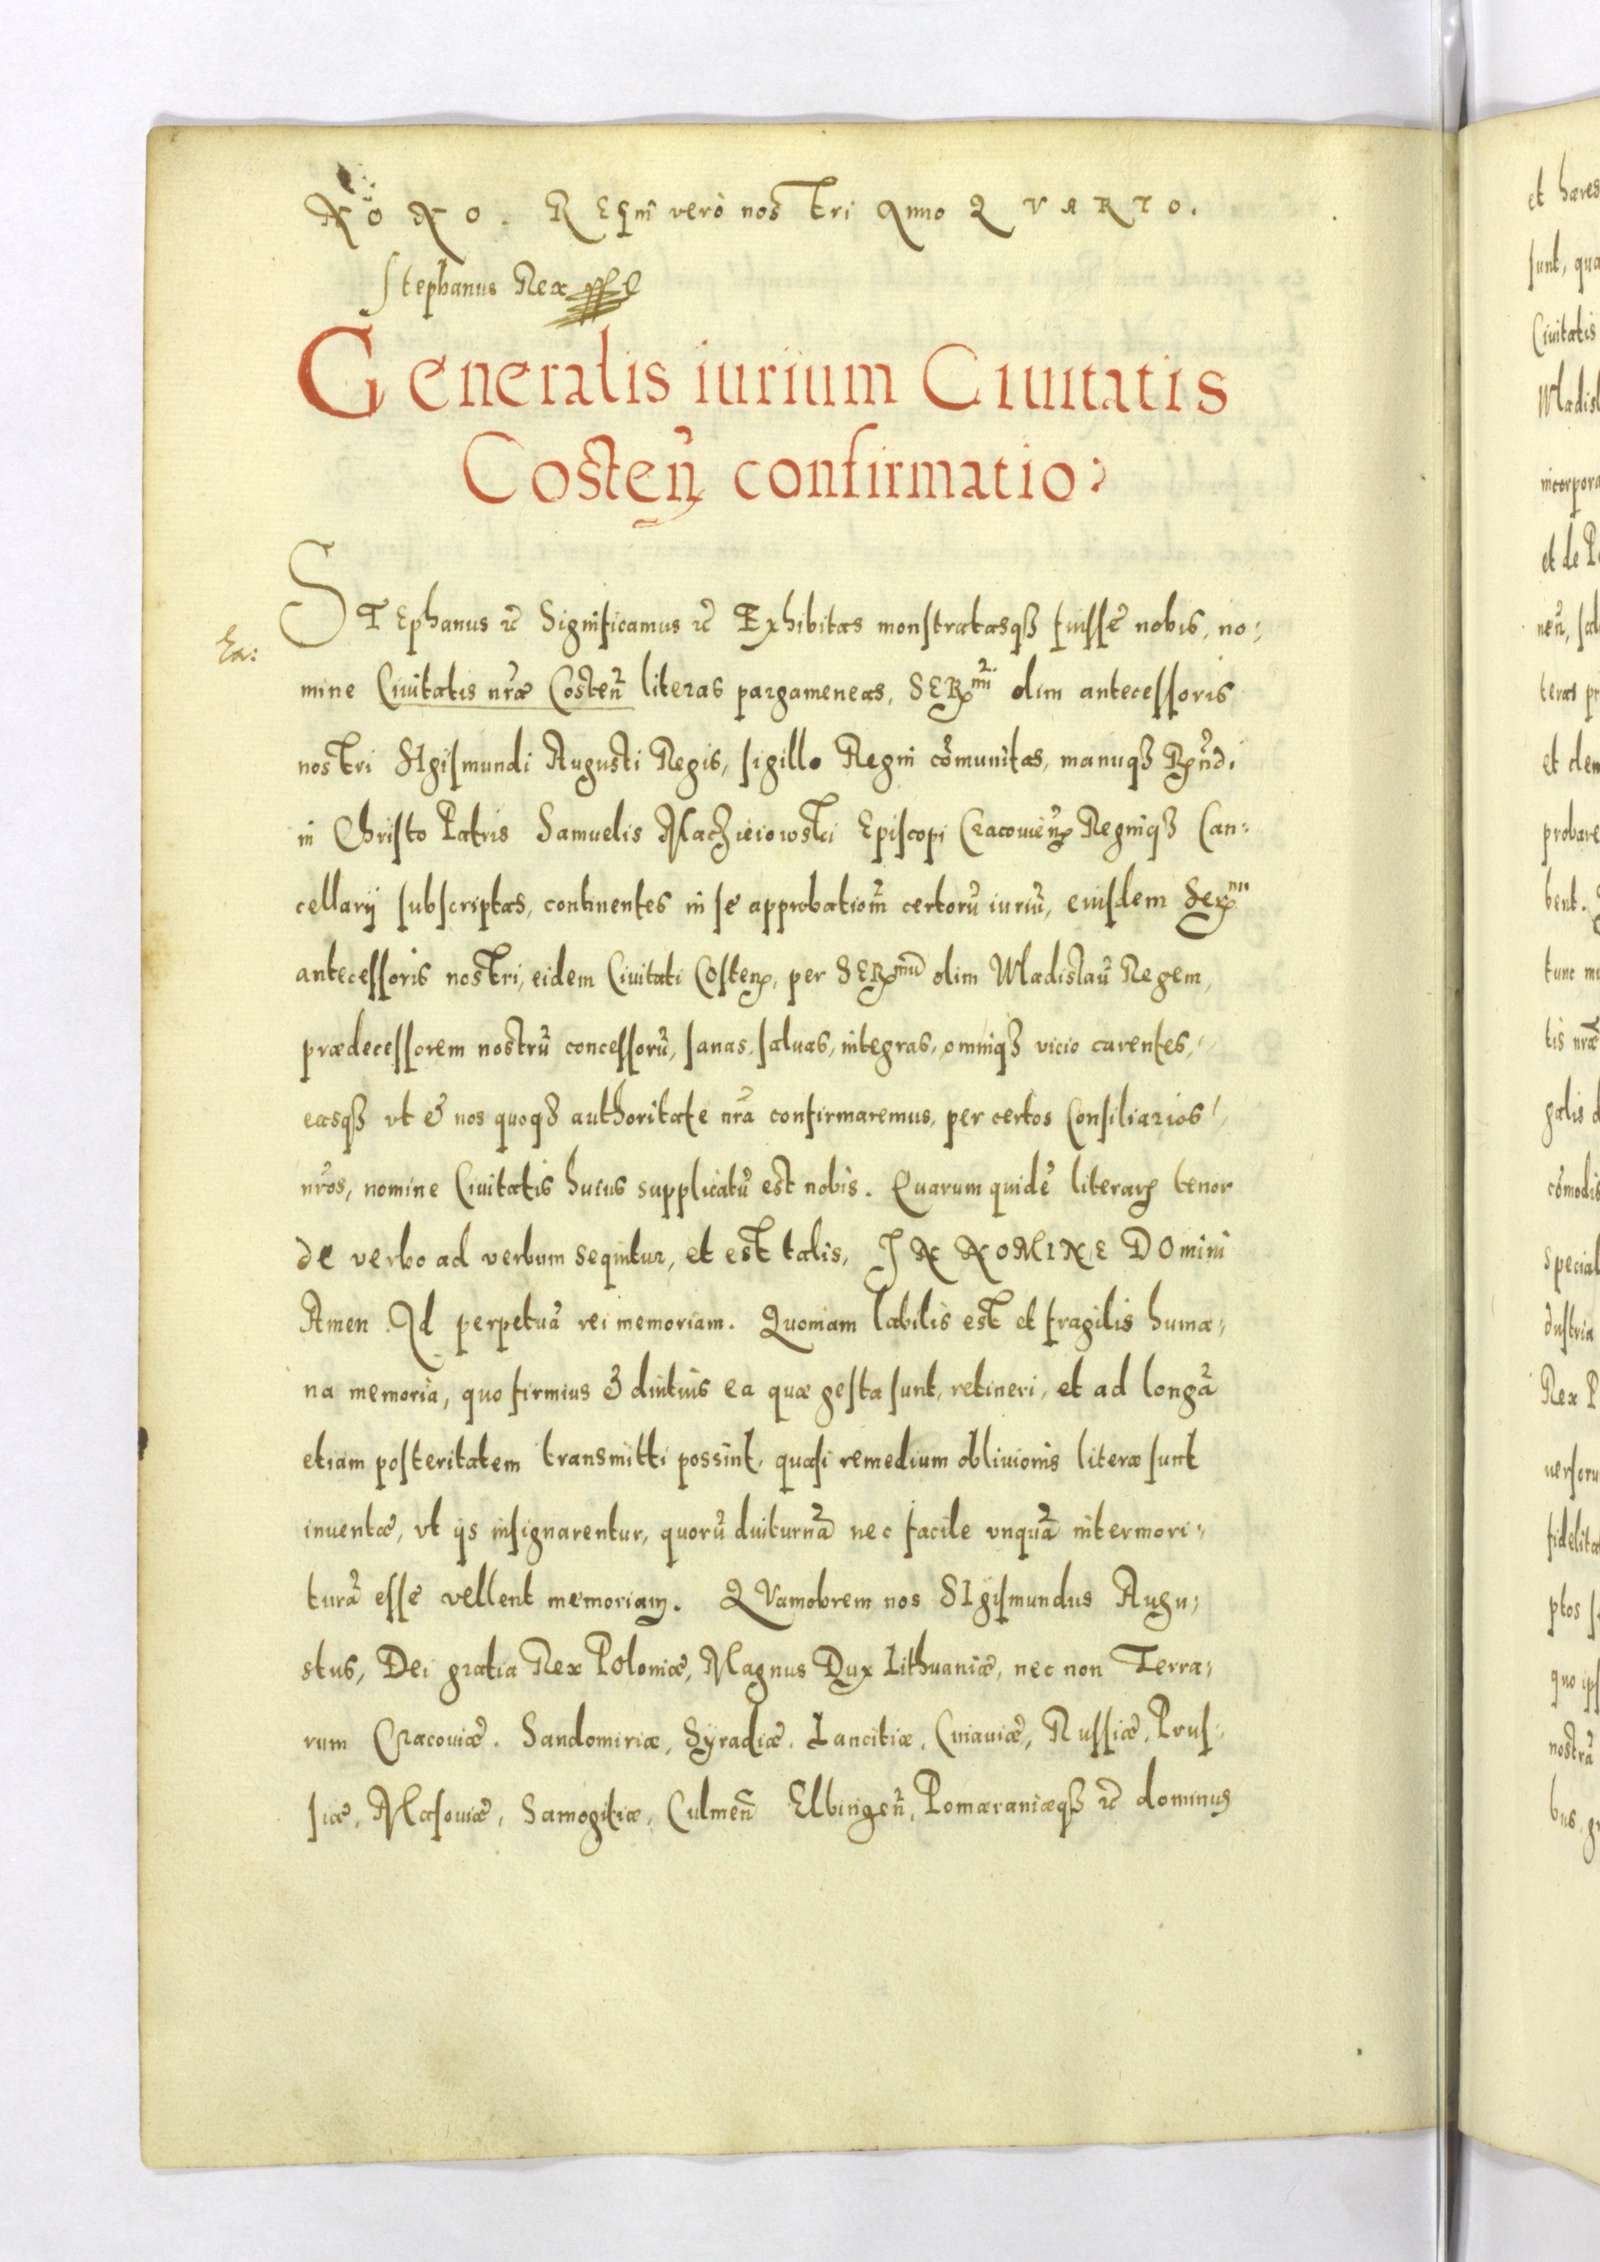 NONO. REgni vero nostri Anno QVARTO.
Stephanus Rex
Generalis iurium Ciuitatis
Costen̄ confirmatio:
STEphanus &c Significamus &c Exhibitas monstratasqȝ fuisse nobis, no:
mine Ciuitatis nr̄æ Costen̄ literas pargameneas, SERmi olim antecessoris
nostri SIgismundi Augusti Regis, sigillo Regni com̄unitas, manuqȝ Rn̄di
in Christo Patris Samuelis Maczieiowski Episcopi Cracouien̄ Regniqȝ Can:
cellarij subscriptas, continentes in se approbationē certorū iuriū, eiusdem Sermi
antecessoris nostri, eidem Ciuitati Costen̄, per SERmū olim Wladislaū Regem,
prædecessorem nostrū concessorū, sanas, saluas, integras, omniqȝ vicio carentes,
easqȝ vt & nos quoqȝ authoritate nr̄a confirmaremus, per certos Consiliarios
nr̄os, nomine Ciuitatis huius supplicatū est nobis. Quarum quidē literarꝝ tenor
de verbo ad verbum sequitur, et est talis, IN NOMINE DOmini
Amen Ad perpetuā rei memoriam. Quoniam labilis est et fragilis huma:
na memoria, quo firmius & diutius ea quæ gesta sunt, retineri, et ad longā
etiam posteritatem transmitti possint, quasi remedium obliuionis literæ sunt
inuentæ, vt ijs insignarentur, quorū diuturnā nec facile vnquā intermori:
turā esse vellent memoriam. QVamobrem nos SIgismundus Augu:
stus, Dei gratia Rex Poloniæ, Magnus Dux Lithuaniæ, nec non Terra:
rum Cracouiæ. Sandomiriæ, Syradiæ, Lancitiæ, Cuiauiæ, Russiæ, Prus:
siæ, Masouiæ, Samogitiæ, Culmen̄ Elbingen̄, Pomæraniæqȝ &c dominus
et hæres
sunt, qua
Ciuitatis
Wladisl
incorpora
et de P
nen̄, sal
teras pr
et dem
probare
bent.
tunc
tis nr̄æ
galis d
com̄odis
special
dustria
Rex P
uersoru
fidelita
ptos
quo ips
nostrā
bus, gr